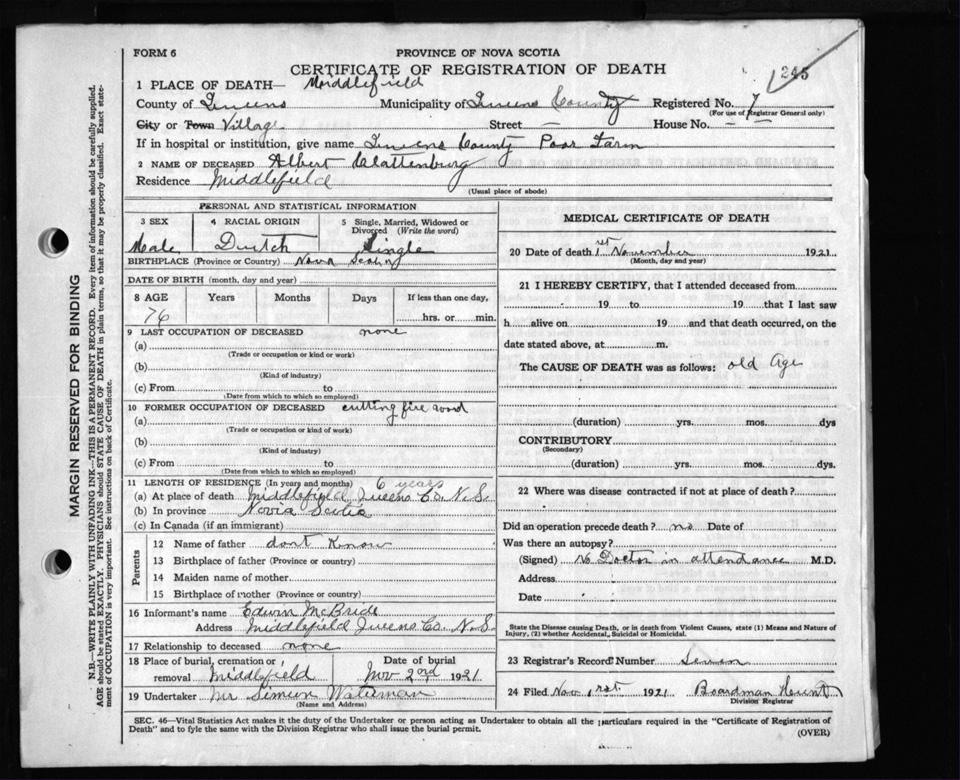 FORM 6
PROVINCE OF NOVA SCOTIA
245
CERTIFICATE OF REGISTRATION OF DEATH
1 PLACE OF DEATH— Middlefield
County of Queens Municipality of Queens County Registered No. 7
(For use of Registrar General only)
City or Town Village Street — House No. — —
If in hospital or institution, give name Queens County Poor Farm
2 NAME OF DECEASED Albert Clattenburg
Residence Middlefield
(Usual place of abode)
PERSONAL AND STATISTICAL INFORMATION
3 SEX 4 RACIAL ORIGIN 5 Single, Married, Widowed or Divorced (Write the word)
Male Dutch Single
BIRTHPLACE (Province or Country) Nova Scotia
DATE OF BIRTH (month, day and year)
8 AGE Years Months Days If less than one day,
76 hrs. or min.
9 LAST OCCUPATION OF DECEASED none
(a)
(Trade or occupation or kind or work)
(b)
(Kind of industry)
(c) From to
(Date from which to which so employed)
10 FORMER OCCUPATION OF DECEASED cutting fire wood
(a)
(Trade or occupation or kind of work)
(b)
(Kind of industry)
(c) From to
(Date from which to which so employed)
11 LENGTH OF RESIDENCE (In years and months) 6 years
(a) At place of death Middlefield Queens Co. N.S.
(b) In province Novia Scotia
(c) In Canada (if an immigrant)
Parents
12 Name of father dont Know
13 Birthplace of father (Province or country)
14 Maiden name of mother
15 Birthplace of mother (Province or country)
16 Informant's name Edwin McBride
Address Middlefield Queens Co. N.S.
17 Relationship to deceased none
18 Place of burial, cremation or removal Middlefield Date of burial Nov 2nd 1921
19 Undertaker Mr Simeon Waterman
(Name and Address)
MEDICAL CERTIFICATE OF DEATH
20 Date of death 1st November 1921.
(Month, day and year)
21 I HEREBY CERTIFY, that I attended deceased from
19 to 19 that I last saw
h alive on 19 and that death occurred, on the
date stated above, at m.
The CAUSE OF DEATH was as follows: old Age
(duration) yrs. mos. dys
CONTRIBUTORY
(Secondary)
(duration) yrs. mos. dys.
22 Where was disease contracted if not at place of death?
Did an operation precede death? no Date of
Was there an autopsy?
(Signed) No Doctor in attendance M.D.
Address
Date
State the Disease causing Death, or in death from Violent Causes, state (1) Means and Nature of
Injury, (2) whether Accidental, Suicidal or Homicidal.
23 Registrar's Record Number Seven
24 Filed Nov 1rst. 1921 Boardman Hunt
Division Registrar
SEC. 46—Vital Statistics Act makes it the duty of the Undertaker or person acting as Undertaker to obtain all the particulars required in the "Certificate of Registration of
Death" and to fyle the same with the Division Registrar who shall issue the burial permit.
(OVER)
MARGIN RESERVED FOR BINDING
N.B.—WRITE PLAINLY WITH UNFADING INK—THIS IS A PERMANENT RECORD. Every item of information should be carefully supplied.
AGE should be stated EXACTLY. PHYSICIANS should STATE CAUSE OF DEATH in plain terms, so that it may be properly classified. Exact state-
ment of OCCUPATION is very important. See instructions on back of Certificate.